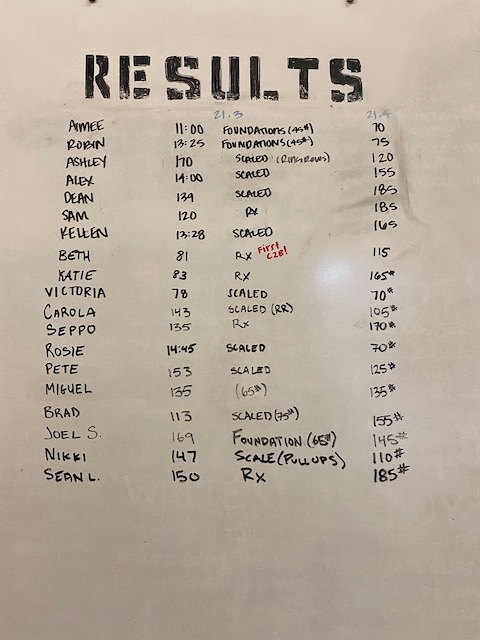 RESULTS
21.3 21.4
AIMEE 11:00 FOUNDATIONS (45#) 70
ROBIN 13:25 FOUNDATIONS (45#) 75
ASHLEY 170 SCALED (RING ROWS) 120
ALEX 14:00 SCALED 155
DEAN 134 SCALED 185
SAM 120 RX 185
KELLEN 13:28 SCALED 165
BETH 81 RX First C2B! 115
KATIE 83 RX 165#
VICTORIA 78 SCALED 70#
CAROLA 143 SCALED (RR) 105#
SEPPO 135 Rx 170#
ROSIE 14:45 SCALED 70#
PETE 153 SCALED 125#
MIGUEL 135 (65#) 135#
BRAD 113 SCALED (75#) 155#
JOEL S. 169 FOUNDATION (65#) 145#
NIKKI 147 SCALE (PULLUPS) 110#
SEAN L. 150 Rx 185#